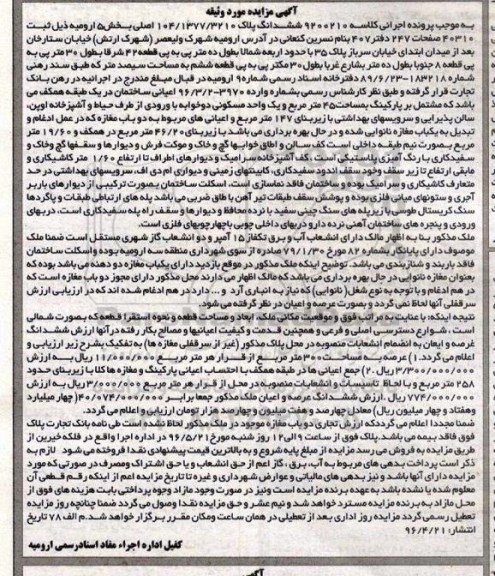 آگهی مزایده مورد وثیقه
به موجب پرونده اجرائی کلاسه ۹۲۰۰۲۱۰ ششدانگ پلاک ۱۰۴/۱۳۷۷/۳۲۱۰ اصلی بخش۵ ارومیه ذیل ثبت
۴۰۳۱۰ صفحات ۲۴۷ دفتر ۴۰۷ بنام نسرین کنعانی در آدرس ارومیه شهرک ولیعصر (شهرک ارتش) خیابان ستارخان
بعد از میدان ابتدای خیابان سرباز پلاک ۳۵ با حدود اربعه شمالا بطول ده متر پی به پی قطعه ۴۲ شرقا بطول ۳۰ متر پی به
پی قطعه ۸ جنوبا بطول ده متر بشارع غربا بطول ۳۰ متر پی به پی قطعه ششم به مساحت سیصد متر که طبق سند رهنی
شماره ۱۸۳۲۱۸-۸۹/۶/۲۳ دفترخانه اسناد رسمی شماره ۹ ارومیه در قبال مبلغ مندرج در اجرائیه در رهن بانک
تجارت قرار گرفته و طبق نظر کارشناس رسمی بشماره وارده ۳۹۷۰-۹۶/۳/۲ اعیانی ساختمان در یک طبقه همکف می
باشد که مشتمل بر پارکینگ بمساحت ۴۵ متر مربع و یک واحد مسکونی دوخوابه با ورودی از طرف حیاط و آشپزخانه اوپن،
سالن پذیرایی و سرویسهای بهداشتی با زیربنای ۱۴۷ متر مربع و اعیانی های مربوط به دو باب مغازه که در عمل ادغام و
تبدیل به یکباب مغازه نانوایی شده و در حال بهره برداری می باشد با زیربنای ۴۶/۲۰ متر مربع در همکف و ۱۹/۶۰ متر
مربع بصورت نیم طبقه داخلی است کف سالن و اطاق خوابها گچ و خاک و موکت فرش و دیوارها و سقفها گچ وخاک و
سفیدکاری با رنگ آمیزی پلاستیکی است. کف آشپزخانه سرامیک و دیوارهای اطراف تا ارتفاع ۱/۶۰ متر کاشیکاری و
مابقی ارتفاع تا زیر سقف وخود سقف اندود سفیدکاری، کابینتهای زمینی و دیواری ام دی اف، سرویسهای بهداشتی در حد
متعارف کاشیکاری و سرامیک بوده و ساختمان فاقد نماسازی است. اسکلت ساختمان بصورت ترکیبی از دیوارهای باربر
آجری و ستونهای میانی فلزی بوده و پوشش سقف طبقات تیر آهن با طاق ضربی می باشد پله های ارتباطی طبقات و پاگردها
سنگ کریستال طوسی با زیرپله های سنگ چینی سفید با نرده محافظ و دیوارها و سقف راه پله سفیدکاری است، دربهای
ورودی و پنجره های ساختمان آهنی نرده دارو دربهای داخلی چوبی باچهارچوبهای فلزی است.
ملک مذکور بنا به اظهار مالک دارای انشعاب آب و برق تکفاز ۱۵ آمپر و دو انشعاب گاز شهری مستقل است ضمنا ملک
موصوف دارای پایانکار بشماره ۸۲ مورخ ۷۹/۱/۳۰ صادره از سوی شهرداری منطقه سه ارومیه بوده و اسکلت ساختمان
فاقد باربند و شناژبندی می باشد. توضیح اینکه ملک مذکور در موقع بازدید دارای یکباب مغازه دو دهنه می باشد بوده که
بعنوان مغازه نانوایی در حال بهره برداری می باشد که مالک اظهار می دارند محل مذکور دارای مجوز دو باب مغازه است که
در هم ادغام و با توجه به نوع شغل (نانوایی) که نیاز به انباری آرد و ... دارد در هم ادغام شده اند که در ارزیابی ارزش
سرقفلی آنها لحاظ نمی گردد و بصورت عرصه و اعیان در نظر گرفته می شود.
نتیجه اینکه: با عنایت به مراتب فوق و موقعیت مکانی ملک، ابعاد و مساحت قطعه و نحوه استقرار قطعه که بصورت شمالی
است، شوارع دسترسی اصلی و فرعی و همچنین قدمت و کیفیت اعیانیها و مصالح بکار رفته در آنها ارزش ششدانگ
عرصه و اعیان به انضمام انشعابات منصوبه در محل پلاک مذکور (غیر از سرقفلی مغازه ها) به تفکیک بشرح زیر ارزیابی و
اعلام می گردد. ۱) عرصه به مساحت ۳۰۰ متر مربع از قرار هر متر مربع ۱۱/۰۰۰/۰۰۰ ریال به ارزش
۳/۳۰۰/۰۰۰/۰۰۰ ریال. ۲) جمع اعیانی ها در طبقه همکف با احتساب اعیانی پارکینگ و مغازه ها کلا با زیربنای حدود
۲۵۸ متر مربع و با لحاظ تاسیسات و انشعابات منصوبه در محل از قرار هر متر مربع ۳/۰۰۰/۰۰۰ ریال به ارزش
۷۷۴/۰۰۰/۰۰۰ ریال. ارزش ششدانگ عرصه و اعیان ملک مذکور جمعا برابر ۴/۰۷۴/۰۰۰/۰۰۰ (چهار میلیارد
وهفتاد و چهار میلیون ریال) معادل چهارصد و هفت میلیون و چهارصد هزار تومان ارزیابی و اعلام می گردد.
ضمنا مجددا اعلام می گردد که ارزش تجاری دو باب مغازه موجود در ملک مذکور لحاظ نشده است طی نامه بانک تجارت پلاک
فوق فاقد بیمه می باشد. پلاک فوق از ساعت ۹ الی ۱۲ روز شنبه مورخ ۹۶/۵/۲۱ در اداره اجرا واقع در فلکه خیرین از
طریق مزایده به فروش می رسد مزایده از مبلغ پایه شروع و به بالاترین قیمت پیشنهادی نقدا فروخته می شود. لازم به
ذکر است پرداخت بدهی های مربوط به آب، برق، گاز اعم از حق انشعاب و یا حق اشتراک ومصرف در صورتی که مورد
مزایده دارای آنها باشد و نیز بدهی های مالیاتی و عوارض شهرداری و غیره تا تاریخ مزایده اعم از اینکه رقم قطعی آن
معلوم شده یا نشده باشد به عهده برنده مزایده است ونیز در صورت وجود مازاد وجوه پرداختی بابت هزینه های فوق از
محل مازاد به برنده مزایده مسترد خواهد شد و نیم عشر و حق مزایده نقدا وصول می گردد ضمنا چنانچه روز مزایده
تعطیل رسمی گردد مزایده روز اداری بعد از تعطیلی در همان ساعت ومکان مقرر برگزار خواهد شد. م الف ۷۸ تاریخ
انتشار: ۹۶/۴/۲۱
کفیل اداره اجراء مفاد اسنادرسمی ارومیه